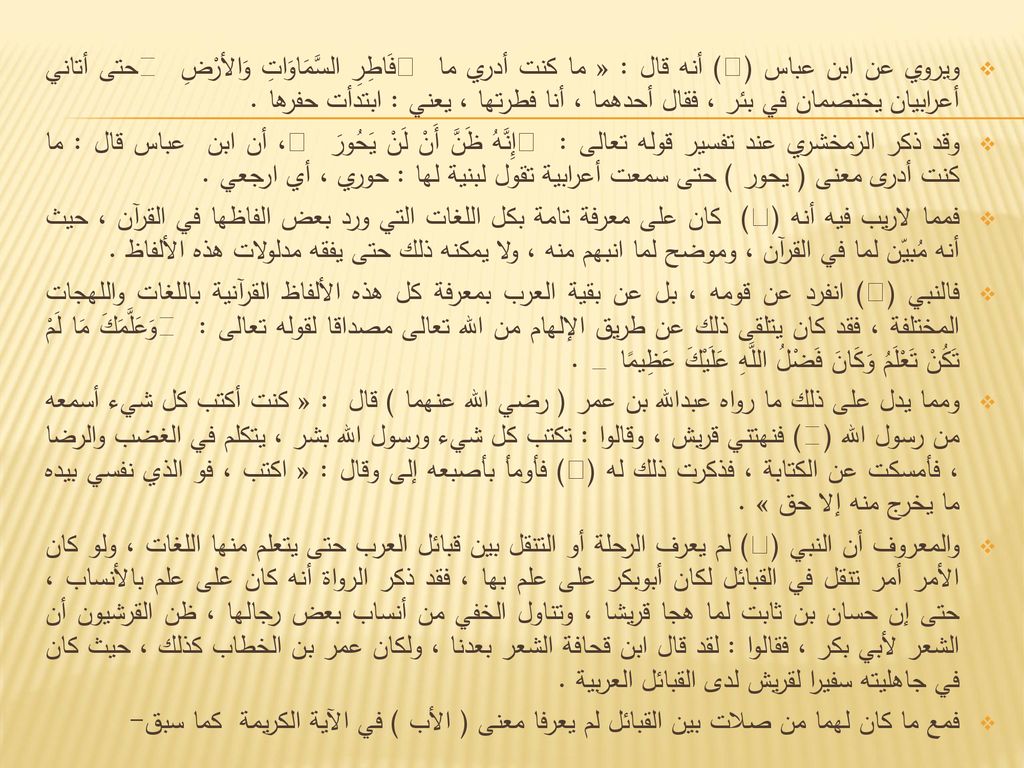 ❖ ويروي عن ابن عباس (□) أنه قال : « ما كنت أدري ما □فَاطِرِ السَّمَاوَاتِ وَالأَرْضِ □حتى أتاني
أعرابيان يختصمان في بئر ، فقال أحدهما ، أنا فطرتها ، يعني : ابتدأت حفرها .
❖ وقد ذكر الزمخشري عند تفسير قوله تعالى : □إِنَّهُ ظَنَّ أَنْ لَنْ يَحُورَ □، أن ابن عباس قال : ما
كنت أدرى معنى ( يحور ) حتى سمعت أعرابية تقول لبنية لها : حوري ، أي ارجعي .
❖ فمما لاريب فيه أنه (□) كان على معرفة تامة بكل اللغات التي ورد بعض الفاظها في القرآن ، حيث
أنه مُبيّن لما في القرآن ، وموضح لما انبهم منه ، ولا يمكنه ذلك حتى يفقه مدلولات هذه الألفاظ .
❖ فالنبي (□) انفرد عن قومه ، بل عن بقية العرب بمعرفة كل هذه الألفاظ القرآنية باللغات واللهجات
المختلفة ، فقد كان يتلقى ذلك عن طريق الإلهام من الله تعالى مصداقا لقوله تعالى : □وَعَلَّمَكَ مَا لَمْ
تَكُنْ تَعْلَمُ وَكَانَ فَضْلُ اللَّهِ عَلَيْكَ عَظِيمًا _ .
❖ ومما يدل على ذلك ما رواه عبدالله بن عمر ( رضي الله عنهما ) قال : « كنت أكتب كل شيء أسمعه
من رسول الله (□) فنهتني قريش ، وقالوا : تكتب كل شيء ورسول الله بشر ، يتكلم في الغضب والرضا
، فأمسكت عن الكتابة ، فذكرت ذلك له (□) فأومأ بأصبعه إلى وقال : « اكتب ، فو الذي نفسي بيده
ما يخرج منه إلا حق » .
❖ والمعروف أن النبي (□) لم يعرف الرحلة أو التنقل بين قبائل العرب حتى يتعلم منها اللغات ، ولو كان
الأمر أمر تنقل في القبائل لكان أبوبكر على علم بها ، فقد ذكر الرواة أنه كان على علم بالأنساب ،
حتى إن حسان بن ثابت لما هجا قريشا ، وتناول الخفي من أنساب بعض رجالها ، ظن القرشيون أن
الشعر لأبي بكر ، فقالوا : لقد قال ابن قحافة الشعر بعدنا ، ولكان عمر بن الخطاب كذلك ، حيث كان
في جاهليته سفيرا لقريش لدى القبائل العربية .
❖ فمع ما كان لهما من صلات بين القبائل لم يعرفا معنى ( الأب ) في الآية الكريمة كما سبق-